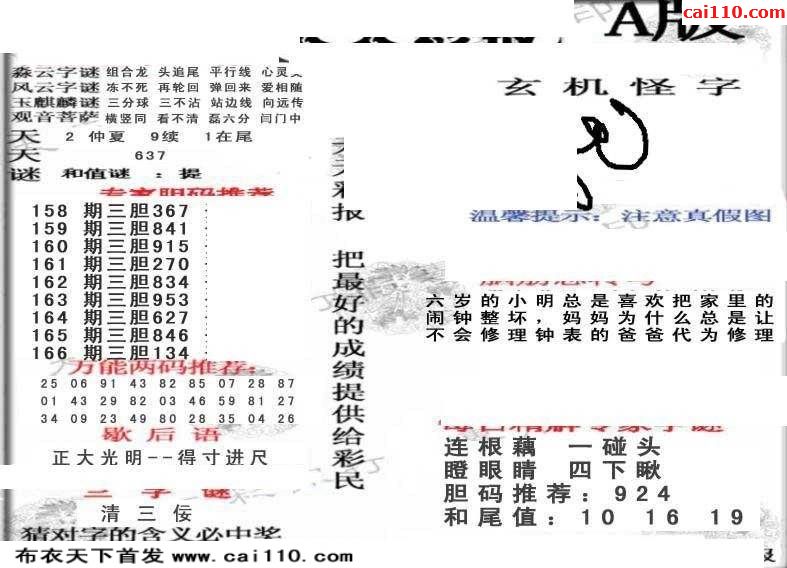 cai110.com
A版
森云字谜 组合龙 头追尾 平行线 心灵
风云字谜 冻不死 再轮回 弹回来 爱相随
玉麒麟谜 三分球 三不沾 站边线 向远传
观音菩萨 横竖同 看不清 磊六分 闫门中
天 2 仲夏 9续 1在尾
天 637
谜 和值谜 : 提
专家胆码推荐
158 期三胆367
159 期三胆841
160 期三胆915
161 期三胆270
162 期三胆834
163 期三胆953
164 期三胆627
165 期三胆846
166 期三胆134
万能两码推荐:
25 06 91 43 82 85 07 28 87
01 43 29 82 03 46 59 81 27
34 09 23 49 80 28 35 04 26
歇后语
正大光明--得寸进尺
三字谜
清三佞
猜对字的含义必中奖
布衣天下首发 www.cai110.com
彩报 把最好的成绩提供给彩民
玄机怪字
温馨提示: 注意真假图
六岁的小明总是喜欢把家里的
闹钟整坏，妈妈为什么总是让
不会修理钟表的爸爸代为修理
连根藕 一碰头
瞪眼睛 四下瞅
胆码推荐: 924
和尾值: 10 16 19
报